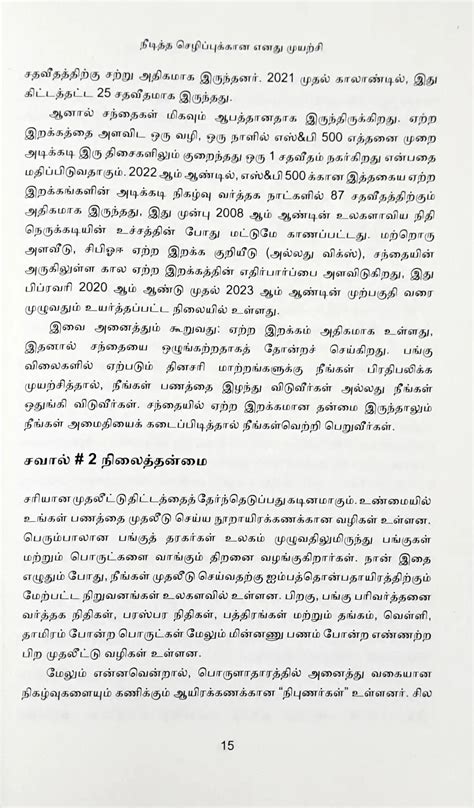 நீடித்த செழிப்புக்கான எனது முயற்சி
சதவீதத்திற்கு சற்று அதிகமாக இருந்தனர். 2021 முதல் காலாண்டில், இது
கிட்டத்தட்ட 25 சதவீதமாக இருந்தது.
ஆனால் சந்தைகள் மிகவும் ஆபத்தானதாக இருந்திருக்கிறது. ஏற்ற
இறக்கத்தை அளவிட ஒரு வழி, ஒரு நாளில் எஸ்&பி 500 எத்தனை முறை
அடிக்கடி இரு திசைகளிலும் குறைந்தது ஒரு 1 சதவீதம் நகர்கிறது என்பதை
மதிப்பிடுவதாகும். 2022 ஆம் ஆண்டில், எஸ்&பி 500 க்கான இத்தகைய ஏற்ற
இறக்கங்களின் அடிக்கடி நிகழ்வு வர்த்தக நாட்களில் 87 சதவீதத்திற்கும்
அதிகமாக இருந்தது, இது முன்பு 2008 ஆம் ஆண்டின் உலகளாவிய நிதி
நெருக்கடியின் உச்சத்தின் போது மட்டுமே காணப்பட்டது. மற்றொரு
அளவீடு, சிபிஓஈ ஏற்ற இறக்க குறியீடு (அல்லது விக்ஸ்), சந்தையின்
அருகிலுள்ள கால ஏற்ற இறக்கத்தின் எதிர்பார்ப்பை அளவிடுகிறது, இது
பிப்ரவரி 2020 ஆம் ஆண்டு முதல் 2023 ஆம் ஆண்டின் முற்பகுதி வரை
முழுவதும் உயர்த்தப்பட்ட நிலையில் உள்ளது.
இவை அனைத்தும் கூறுவது: ஏற்ற இறக்கம் அதிகமாக உள்ளது,
இதனால் சந்தையை ஒழுங்கற்றதாகத் தோன்றச் செய்கிறது. பங்கு
விலைகளில் ஏற்படும் தினசரி மாற்றங்களுக்கு நீங்கள் பிரதிபலிக்க
முயற்சித்தால், நீங்கள் பணத்தை இழந்து விடுவீர்கள் அல்லது நீங்கள்
ஒதுங்கி விடுவீர்கள். சந்தையில் ஏற்ற இறக்கமான தன்மை இருந்தாலும்
நீங்கள் அமைதியைக் கடைப்பிடித்தால் நீங்கள்வெற்றி பெறுவீர்கள்.
சவால் # 2 நிலைத்தன்மை
சரியான முதலீட்டு திட்டத்தைத் தேர்ந்தெடுப்பது கடினமாகும். உண்மையில்
உங்கள் பணத்தை முதலீடு செய்ய நூறாயிரக்கணக்கான வழிகள் உள்ளன.
பெரும்பாலான பங்குத் தரகர்கள் உலகம் முழுவதிலுமிருந்து பங்குகள்
மற்றும் பொருட்களை வாங்கும் திறனை வழங்குகிறார்கள். நான் இதை
எழுதும் போது, நீங்கள் முதலீடு செய்வதற்கு ஐம்பத்தொன்பதாயிரத்திற்கும்
மேற்பட்ட நிறுவனங்கள் உலகளவில் உள்ளன. பிறகு, பங்கு பரிவர்த்தனை
வர்த்தக நிதிகள், பரஸ்பர நிதிகள், பத்திரங்கள் மற்றும் தங்கம், வெள்ளி,
தாமிரம் போன்ற பொருட்கள் மேலும் மின்னணு பணம் போன்ற எண்ணற்ற
பிற முதலீட்டு வழிகள் உள்ளன.
மேலும் என்னவென்றால், பொருளாதாரத்தில் அனைத்து வகையான
நிகழ்வுகளையும் கணிக்கும் ஆயிரக்கணக்கான “நிபுணர்கள்” உள்ளனர். சில
15